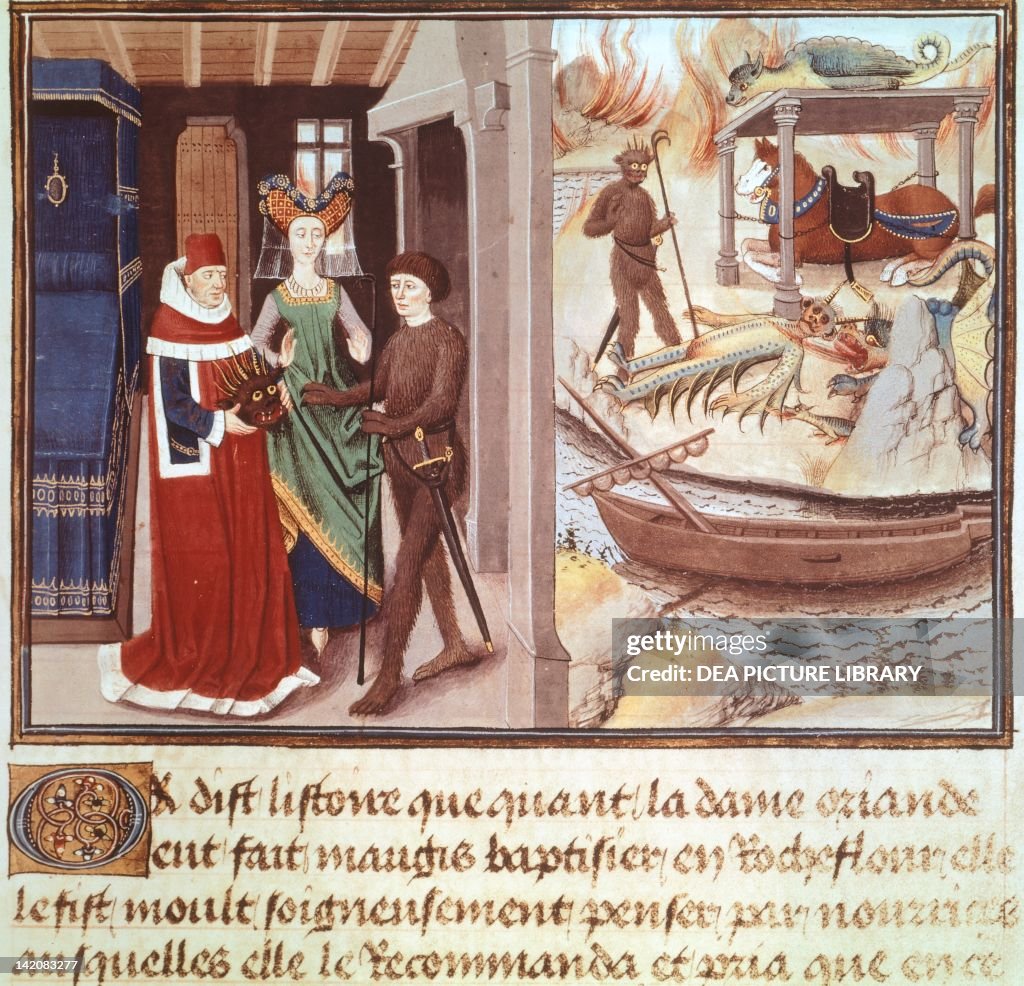 gettyimages®
DEA PICTURE LIBRARY
Or dist listoire que quant la dame oriande
eut fait maugis baptisier en Rocheflour elle
le fist moult soigneusement penser par nourrices
esquelles elle le Recommanda et pria que en ce
142083277